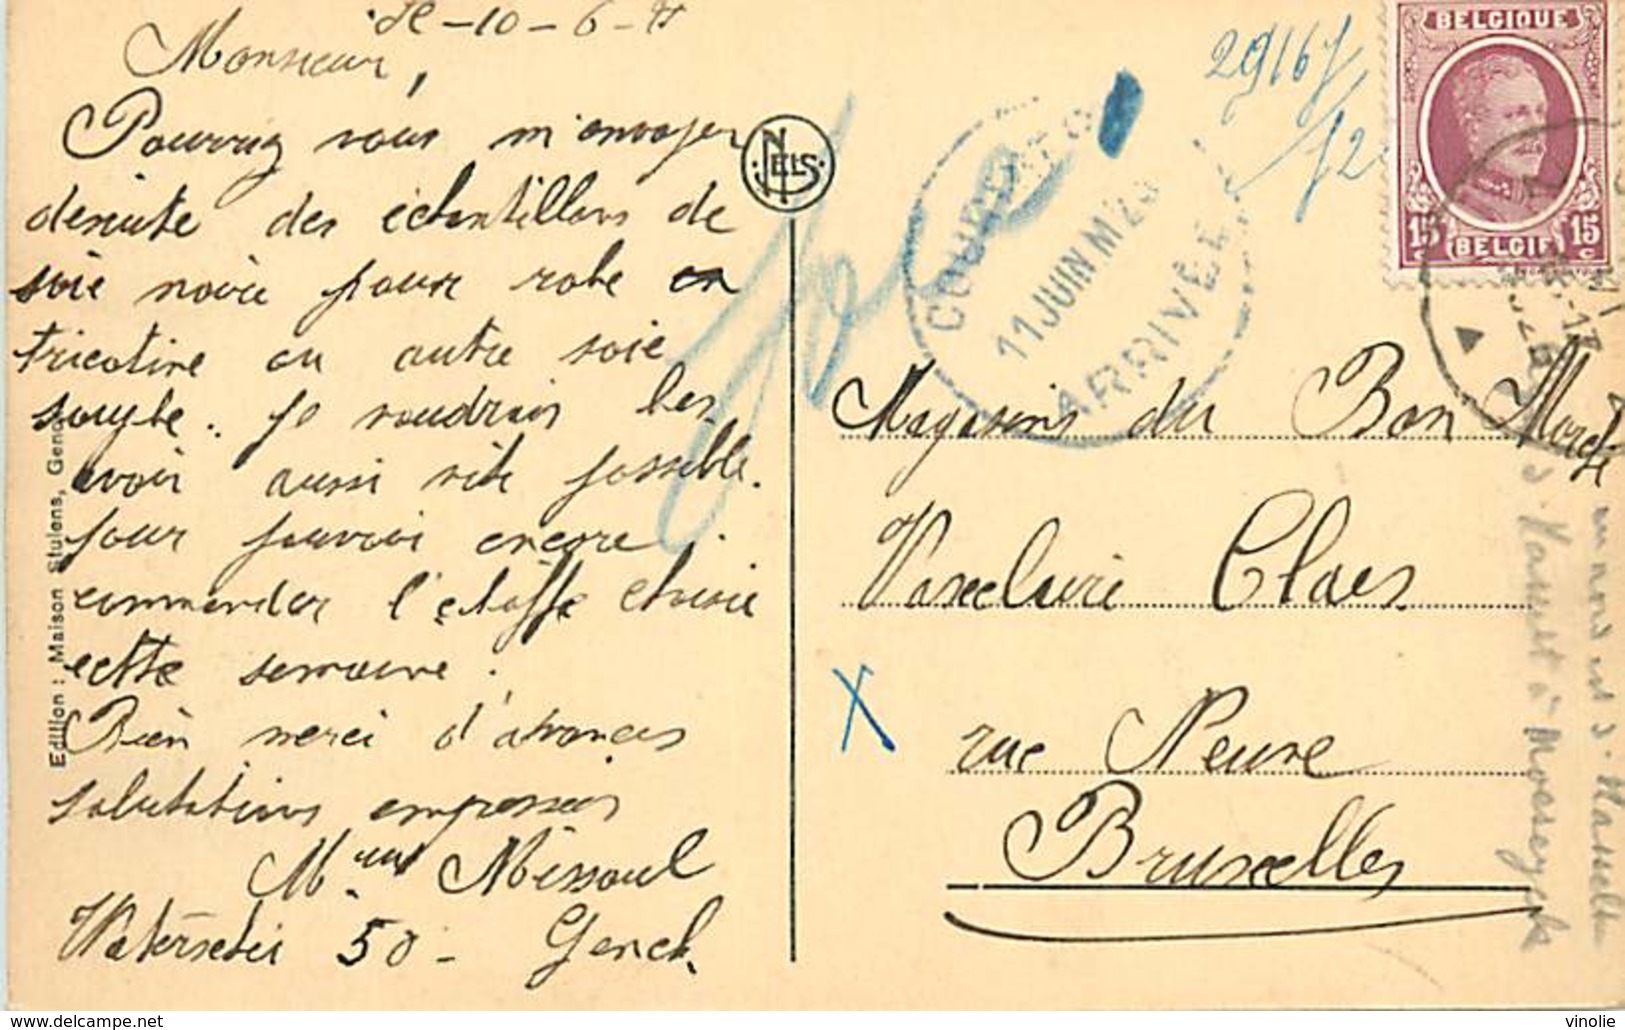 10 - 6 -
Monsieur,
Pourriez vous m'envoyer
de suite des échantillons de
soie noire pour robe en
tricotine ou autre soie
souple. Je voudrais les
avoir aussi vite possible.
pour pouvoir encore
commander l'étoffe choisie
cette semaine.
Bien merci d'avances
salutations empressées
Mme Missoul
50 - Genck.
Edition : Maison Stulens, Genck
NELS
29167
12
COURRIER
11 JUIN M
ARRIVEE
BELGIQUE
15 15
BELGIE
Magasins du Bon Marché
Vaxelaire Claes
X
rue Neuve
Bruxelles
au nord est d'Hasselt
d'Hasselt à Maeseyck
www.delcampe.net
vinolie